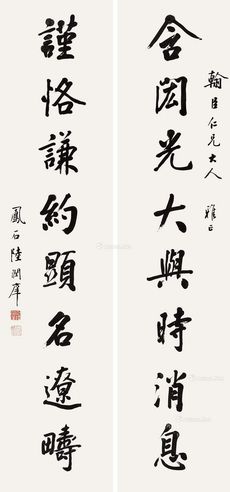 翰臣仁兄大人 雅正
含閎光大與時消息
謹恪謙約顯名遼疇
鳳石陸潤庠